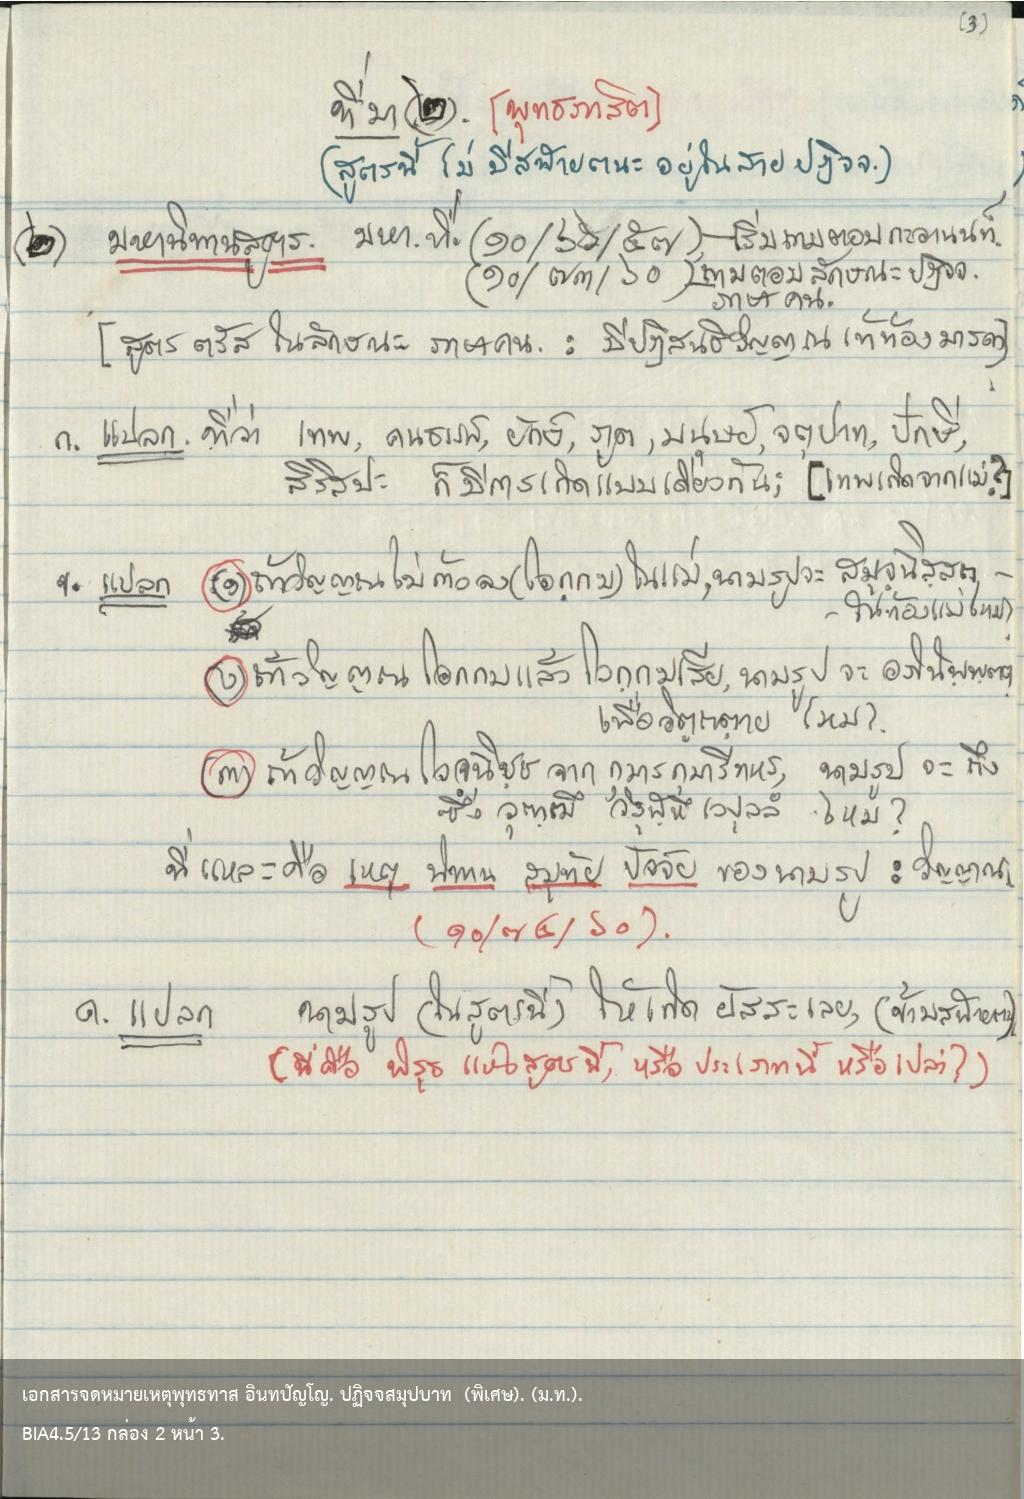 (3)
ที่มา (๒). [พุทธภาสิต]
(สูตรนี้ ไม่ มีสฬายตนะ อยู่ในสาย ปฏิจจ.)
(๒) มหานิทานสูตร. มหา. ที. (๑๐/๖๖/๕๗) เริ่มถามตอบกะอานนท์.
(๑๐/๗๓/๖๐) ถามตอบลักษณะปฏิจจ.
ภาษาคน.
[สูตร ตรัส ในลักษณะ ภาษาคน. : มีปฏิสนธิวิญญาณ เข้าท้องมารดา]
ก. แปลก. ที่ว่า เทพ, คนธรรพ์, ยักษ์, ภูต, มนุษย์, จตุปาท, ปักษี,
สิริสปะ ก็มีการเกิดแบบเดียวกัน; [เทพเกิดจากแม่?]
ข. แปลก (๑) ถ้าวิญญาณไม่ก้าวลง (โอกฺกม) ในแม่, นามรูปจะ สมุจฺฉิสฺสถ, –
– ในท้องแม่ไหม?
(๒) ถ้าวิญญาณ โอกกมแล้ว โวกฺกมเสีย, นามรูป จะ อภินิพฺพตฺต
เพื่ออิตฺถตฺตาย ไหม?.
(๓) ถ้าวิญญาณ โวจฺฉิชฺช จาก กุมารกุมารีทหร, นามรูป จะ ถึง
ซึ่ง วุฑฺฒึ วิรุฬฺหึ เวปุลลํ ไหม?
นี่แหละคือ เหตุ นิทาน สมุทัย ปัจจัย ของนามรูป : วิญญาณ
(๑๐/๗๔/๖๐).
ค. แปลก นามรูป (ในสูตรนี้) ให้เกิด ผัสสะเลย, (ข้ามสฬายตน)
(นี่คือ พิรุธ แห่งสูตรนี้, หรือ ประเภทนี้ หรือเปล่า?)
เอกสารจดหมายเหตุพุทธทาส อินทปัญโญ. ปฏิจจสมุปบาท (พิเศษ). (ม.ท.).
BIA4.5/13 กล่อง 2 หน้า 3.